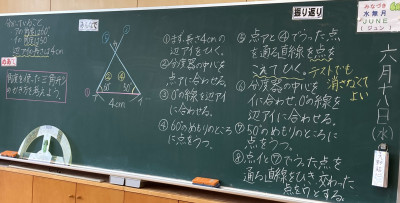 分かっていること
アの角度は60°
イの角度は50°
辺アイの長さは4cm
めあて
角度を使った三角形
のかき方を考えよう。
見通して
60°
50°
ア
イ
4cm
①まず、長さ4cmの
辺アイをひく。
②分度器の中心を
アに合わせる。
③0°の線を辺ア
イに合わせる。
④60°のめもりのところ
に点をうつ。
振り返り
⑤点アと④でうった点
を通る直線を点を
通してひく。
テストでも
消さなくて
よい
⑥分度器の中心を
イに合わせ、0°の線を
辺アイに合わせる。
⑦50°のめもりのところ
に点をうつ。
⑧点イと⑦でうった点を
通る直線をひき、交わった
点をウとする。
みなづき
水無月
JUNE
(ジューン)
六月十八日(水)